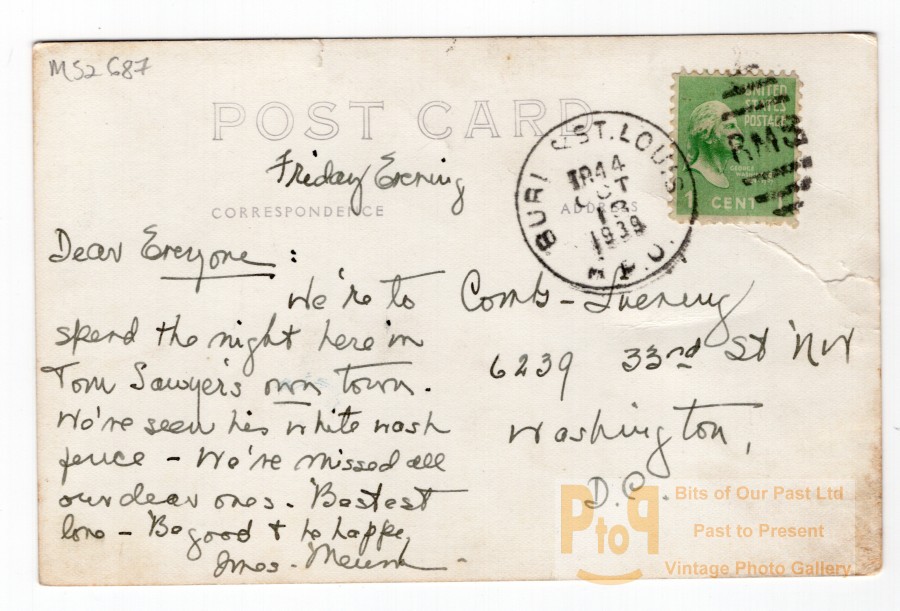 MS2 687
POST CARD
Friday Evening
CORRESPONDENCE
ADDRESS
UNITED STATES POSTAGE
GEORGE
1 CENT 1
RMS
BURL & ST. LOUIS
TR 44
OCT
13
1939
R.P.O.
Dear Everyone :
We're to
spend the night here in
Tom Sawyer's own town.
We've seen his white wash
fence - We've missed all
our dear ones. Bestest
love - Be good & be happy
6239 33rd St NW
Washington,
D.C.
PtoP
Bits of Our Past Ltd
Past to Present
Vintage Photo Gallery